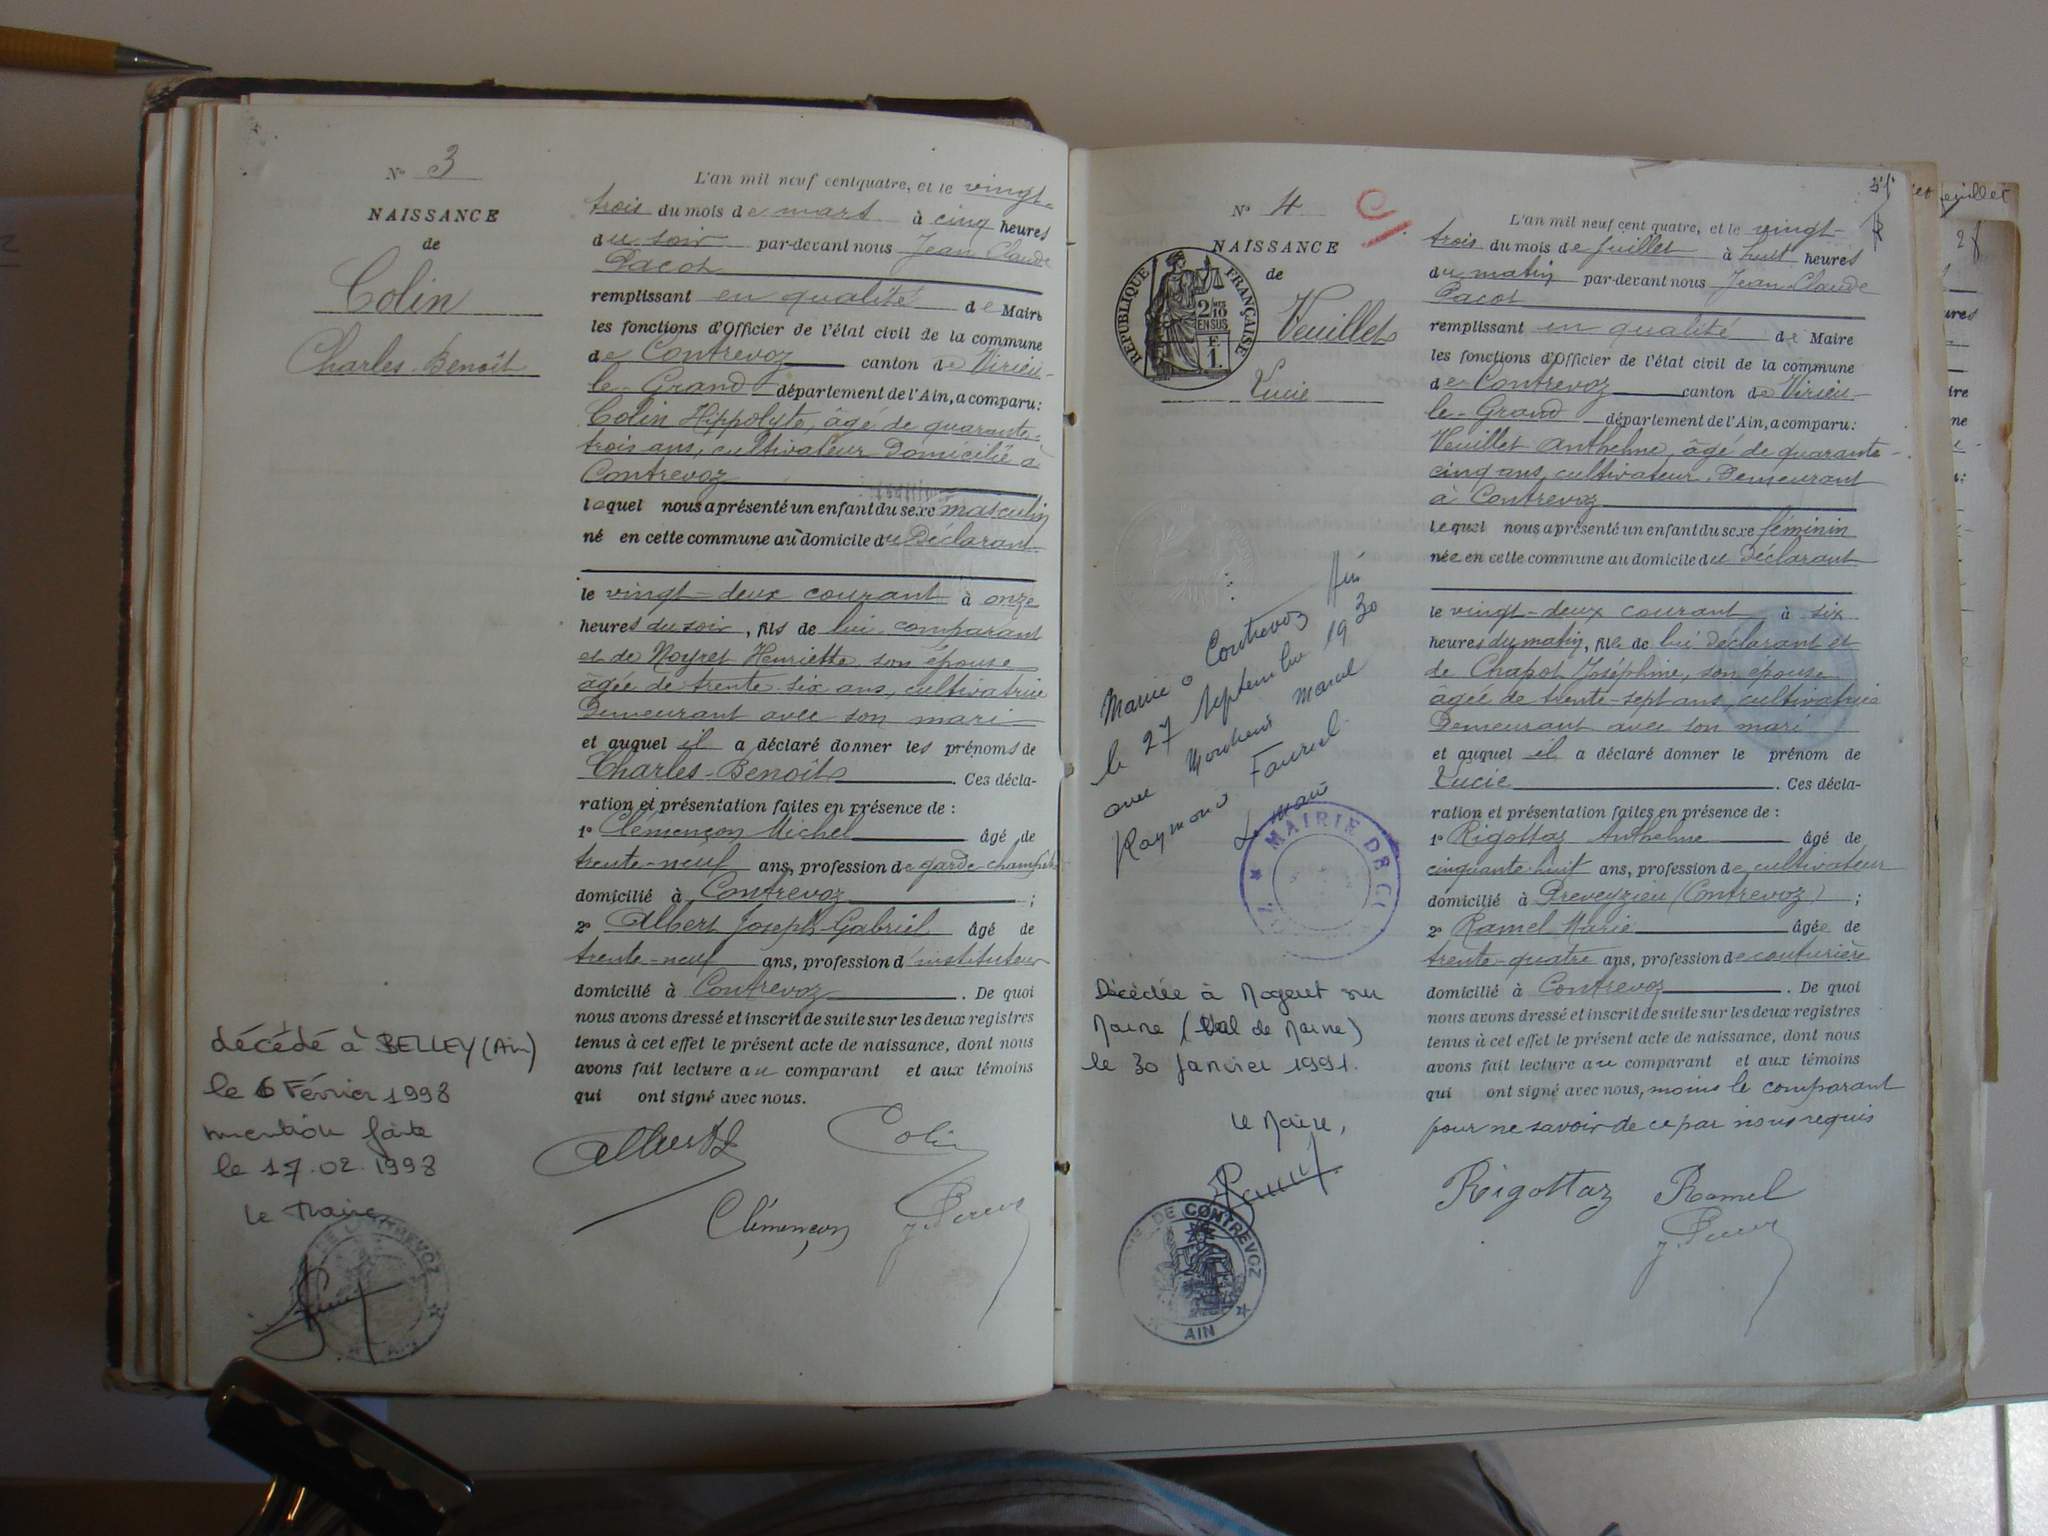 N° 3
NAISSANCE
de
Colin
Charles-Benoît
L'an mil neuf cent quatre, et le vingt-
trois du mois de mars à cinq heures
du soir par-devant nous Jean Claude
Pacot
remplissant en qualité de Maire
les fonctions d'Officier de l'état civil de la commune
de Contrevoz canton de Virieu-
le-Grand département de l'Ain, a comparu:
Colin Hippolyte, âgé de quarante-
trois ans, cultivateur Domicilié à
Contrevoz
lequel nous a présenté un enfant du sexe masculin
né en cette commune au domicile du Déclarant
le vingt-deux courant à onze
heures du soir, fils de lui comparant
et de Noyret Henriette son épouse
âgée de trente six ans, cultivatrice
Demeurant avec son mari
et auquel il a déclaré donner les prénoms de
Charles-Benoît. Ces décla-
ration et présentation faites en présence de :
1° Clémençon Michel âgé de
trente-neuf ans, profession de garde-champêtre
domicilié à Contrevoz ;
2° Albert Joseph-Gabriel âgé de
trente-neuf ans, profession d'instituteur
domicilié à Contrevoz. De quoi
nous avons dressé et inscrit de suite sur les deux registres
tenus à cet effet le présent acte de naissance, dont nous
avons fait lecture au comparant et aux témoins
qui ont signé avec nous.
Albert Colin
Clémençon
décédé à BELLEY (Ain)
le 6 Février 1998
mention faite
le 17.02.1998
Le Maire
DE CONTREVOZ
AIN
51
N° 4
NAISSANCE
de
Veuillet
Lucie
RÉPUBLIQUE FRANÇAISE
2/10
EN SUS
F
1.
L'an mil neuf cent quatre, et le vingt-
trois du mois de juillet à huit heures
du matin par-devant nous Jean-Claude
Pacot
remplissant en qualité de Maire
les fonctions d'Officier de l'état civil de la commune
de Contrevoz canton de Virieu-
le-Grand département de l'Ain, a comparu:
Veuillet Anthelme, âgé de quarante-
cinq ans, cultivateur, Demeurant
à Contrevoz
lequel nous a présenté un enfant du sexe féminin
née en cette commune au domicile du Déclarant
le vingt-deux courant à six
heures du matin, fille de lui déclarant et
de Chapot Joséphine, son épouse
âgée de trente-sept ans, cultivatrice
Demeurant avec son mari
et auquel il a déclaré donner le prénom de
Lucie. Ces décla-
ration et présentation faites en présence de :
1° Rigottaz Anthelme âgé de
cinquante-huit ans, profession de cultivateur
domicilié à Preveyzieu (Contrevoz) ;
2° Ramel Marie âgée de
trente-quatre ans, profession de couturière
domicilié à Contrevoz. De quoi
nous avons dressé et inscrit de suite sur les deux registres
tenus à cet effet le présent acte de naissance, dont nous
avons fait lecture au comparant et aux témoins
qui ont signé avec nous, moins le comparant
pour ne savoir de ce par nous requis
Rigottaz Ramel
Mariée à Contrevoz Ain
le 27 septembre 1930
avec Monsieur Marcel
Raymond Fauriel
Le maire
MAIRIE DE C
Décédée à Nogent sur
Marne (Val de Marne)
le 30 janvier 1991.
Le Maire,
DE CONTREVOZ
AIN
feuillet